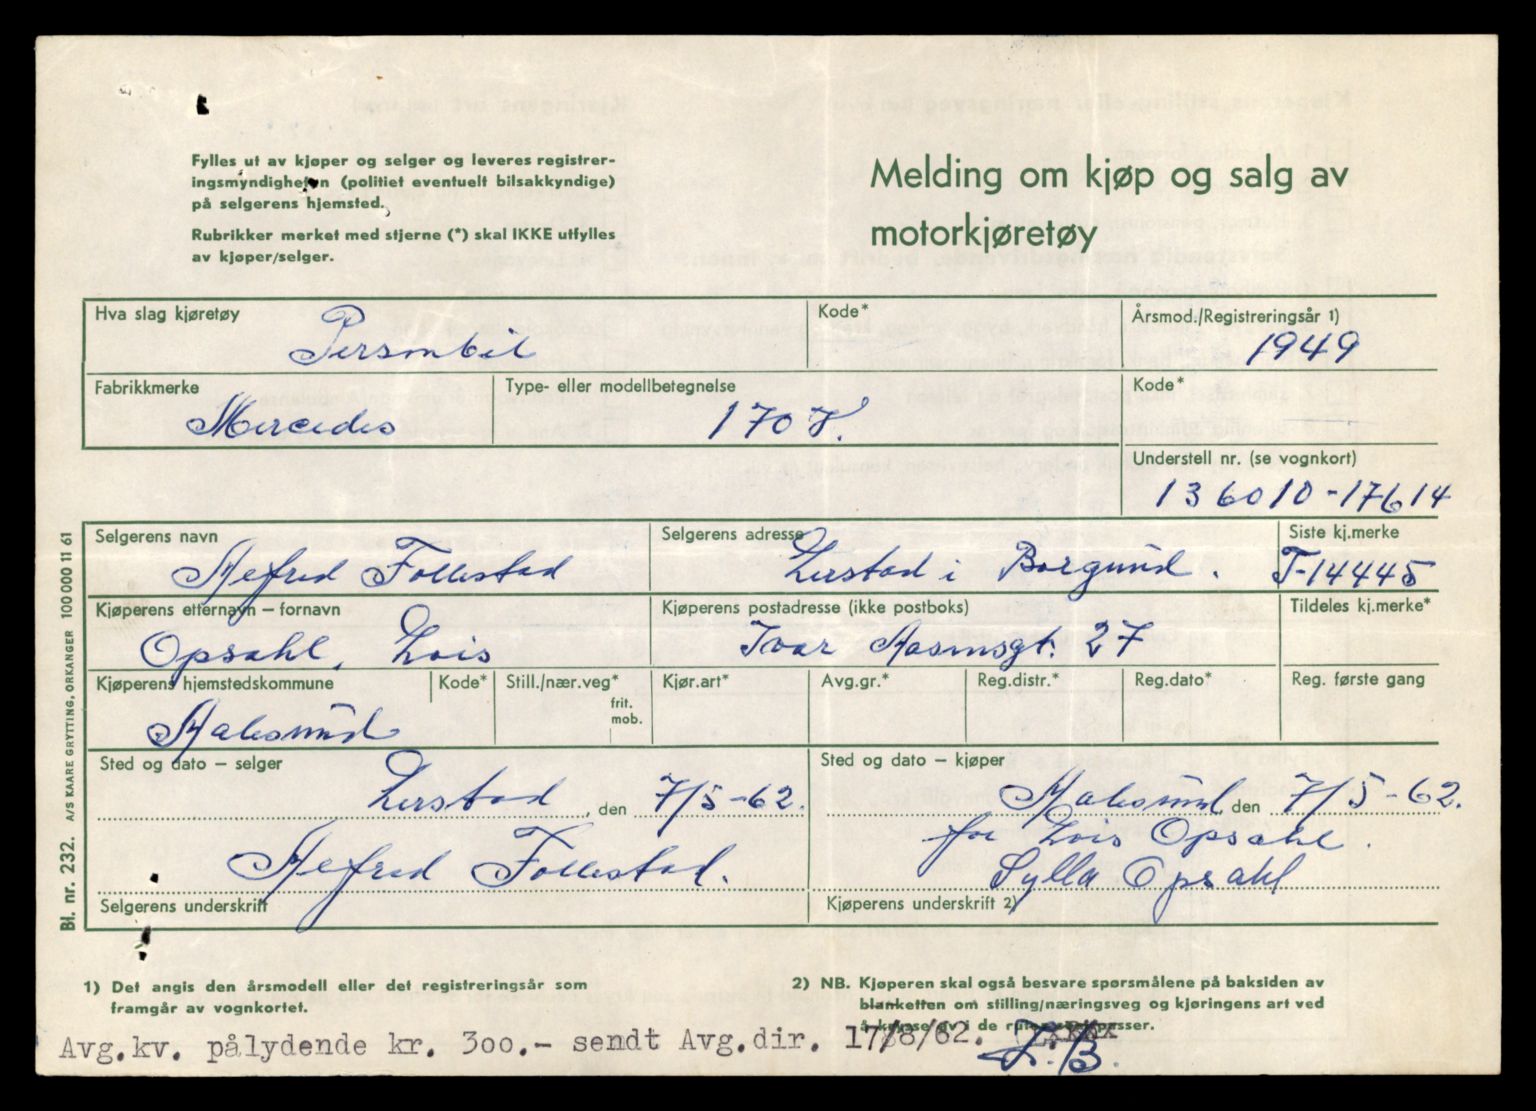 Fylles ut av kjøper og selger og leveres registrer-
ingsmyndigheten (politiet eventuelt bilsakkyndige)
på selgerens hjemsted.
Rubrikker merket med stjerne (*) skal IKKE utfylles
av kjøper/selger.
Melding om kjøp og salg av
motorkjøretøy
Hva slag kjøretøy
Personbil
Kode*
Årsmod./Registreringsår 1)
1949
Fabrikkmerke
Mercedes
Type- eller modellbetegnelse
170 V.
Kode*
Understell nr. (se vognkort)
136010-17614
Selgerens navn
Alfred Follestad
Selgerens adresse
Lerstad i Borgund.
Siste kj.merke
T-14445
Kjøperens etternavn – fornavn
Opsahl, Lois
Kjøperens postadresse (ikke postboks)
Ivar Aasensgt. 27
Tildeles kj.merke*
Kjøperens hjemstedskommune
Aalesund
Kode*
Still./nær.veg*
frit.
mob.
Kjør.art*
Avg.gr.*
Reg.distr.*
Reg.dato*
Reg. første gang
Sted og dato – selger
Lerstad, den 7/5-62.
Alfred Follestad.
Selgerens underskrift
Sted og dato – kjøper
Aalesund, den 7/5-62.
for Lois Opsahl.
Sylla Opsahl
Kjøperens underskrift 2)
1) Det angis den årsmodell eller det registreringsår som
framgår av vognkortet.
2) NB. Kjøperen skal også besvare spørsmålene på baksiden av
blanketten om stilling/næringsveg og kjøringens art ved
å krysse av i de ruter som passer.
Avg.kv. pålydende kr. 300.- sendt Avg.dir. 17/8/62.
Bl. nr. 232. A/S KAARE GRYTTING, ORKANGER 100 000 11 61